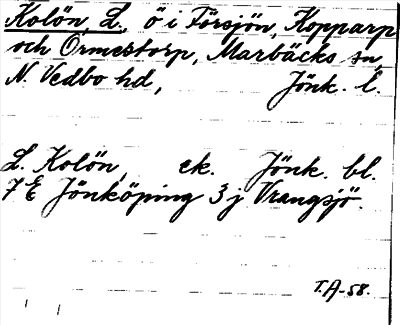 Kolön, L., ö i Försjön, Kopparp
och Ormestorp, Marbäcks sn,
N. Vedbo hd, Jönk. l.
L. Kolön, ek. Jönk. bl.
7 E Jönköping 3 j Vrangsjö.
T.A-58.